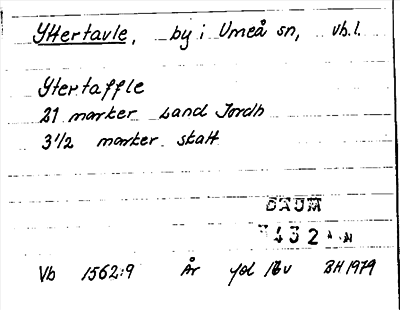 Yttertavle, by i Umeå sn, vb.l.
Ytertaffle
21 marker Land Jordh
3 1/2 marker skatt
DAUM
432
Vb 1562:9 År fol 16v BH 1979